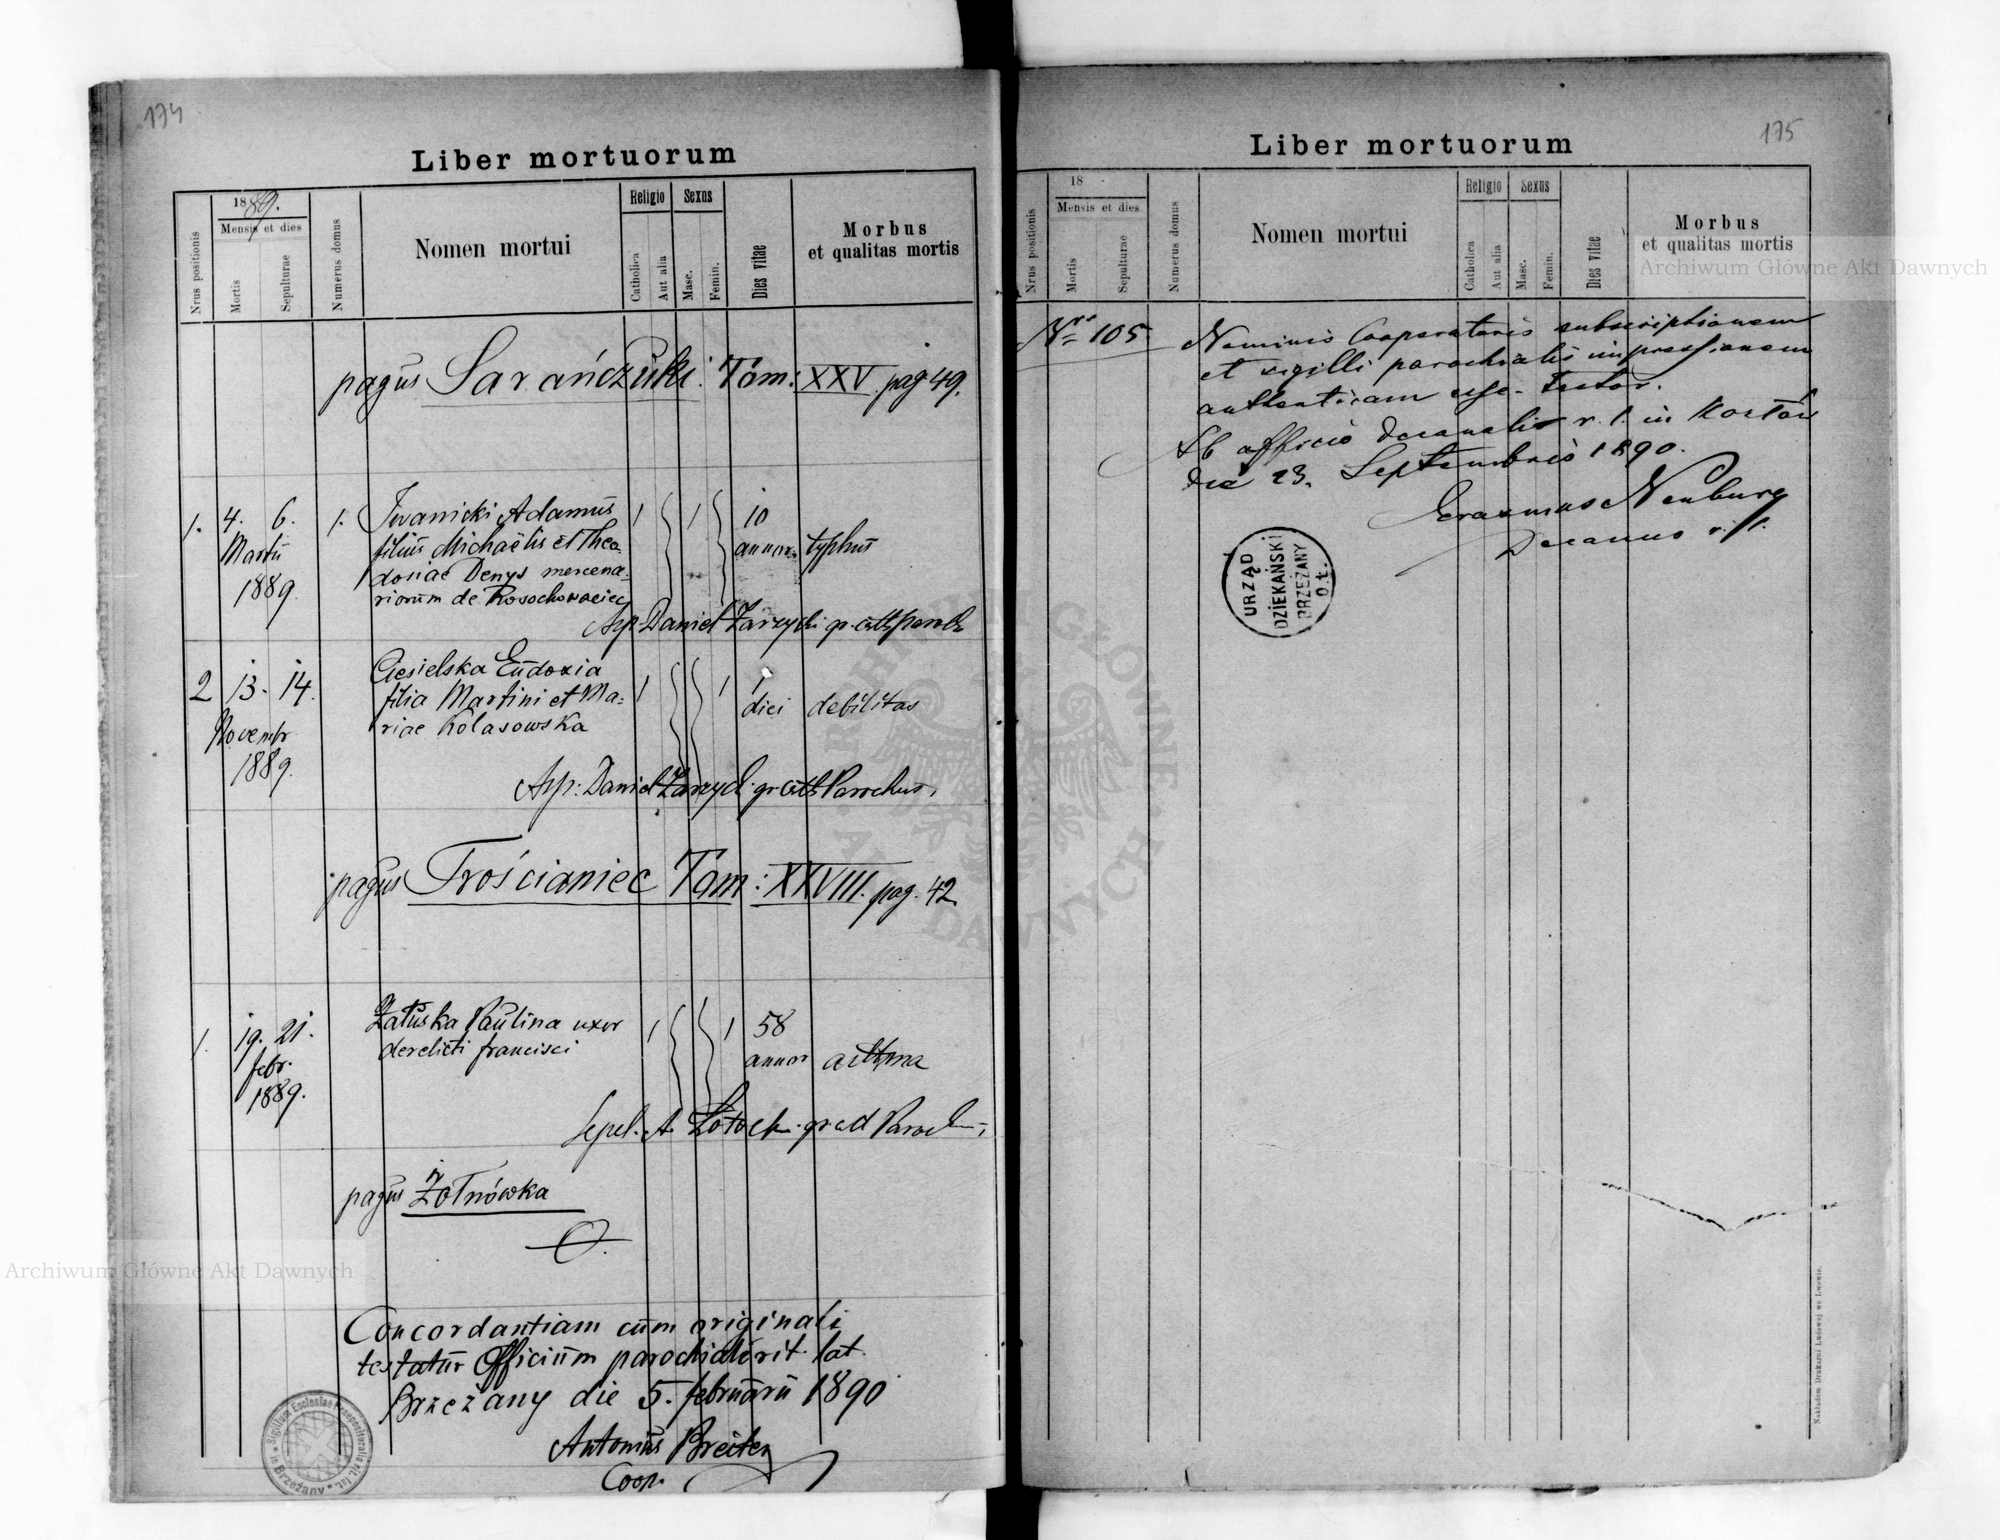 174
Liber mortuorum
1889.
Mensis et dies
Religio
Sexus
Nrus positionis
Mortis
Sepulturae
Numerus domus
Nomen mortui
Catholica
Aut alia
Masc.
Femin.
Dies vitae
Morbus
et qualitas mortis
pagus Sarańczuki. Tom: XXV pag 49.
1. 4. 6. 1. Iwanicki Adamus 1 1 10
Martii filius Michaëlis et Theo- annor. typhus
1889. dosiae Denys mercena-
riorum de Rosochowaciec
Daniel Zarzycki gr. cath
2 13. 14. Ciesielska Eudoxia 1 1 1
Novembr filia Martini et Ma- diei debilitas
1889. riae Kolasowska
Daniel Zarzycki gr cath Parochus.
pagus Trościaniec Tom: XXVIII. pag. 42
1. 19. 21. Załuska Paulina uxor 1 1 58
febr. derelicti francisci annor asthma
1889.
Sepel. A.
pagus Żołnówka
O.
Concordantiam cum originali
testatur Officium parochial rit. lat.
Brzeżany die 5. februarii 1890
Antonius Breiter
Coop.
Sigillum Ecclesiae Praeposituralis rit. lat. in Brzeżany
175
Liber mortuorum
18
Mensis et dies
Religio
Sexus
Nrus positionis
Mortis
Sepulturae
Numerus domus
Nomen mortui
Catholica
Aut alia
Masc.
Femin.
Dies vitae
Morbus
et qualitas mortis
Nr 105 Nominis Cooperatoris subscriptionem
et sigilli parochialis impressionem
authenticam esse testor.
Ab officio decanali r. l. in
die 23. Septembris 1890.
Erasmus Neuburg
Decanus r. l.
URZĄD
DZIEKAŃSKI
BRZEŻANY
O.Ł.
Nakładem Drukarni Ludowej we Lwowie.
Archiwum Główne Akt Dawnych
Archiwum Główne Akt Dawnych
ARCHIWUM GŁÓWNE AKT DAWNYCH